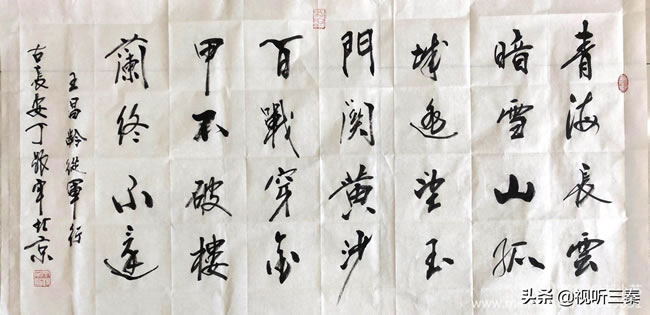 青海長雲
暗雪山孤
城遙望玉
門関黄沙
百戰穿金
甲不破樓
蘭終不還
王昌齡從軍行
古長安丁
头条 @视听三秦